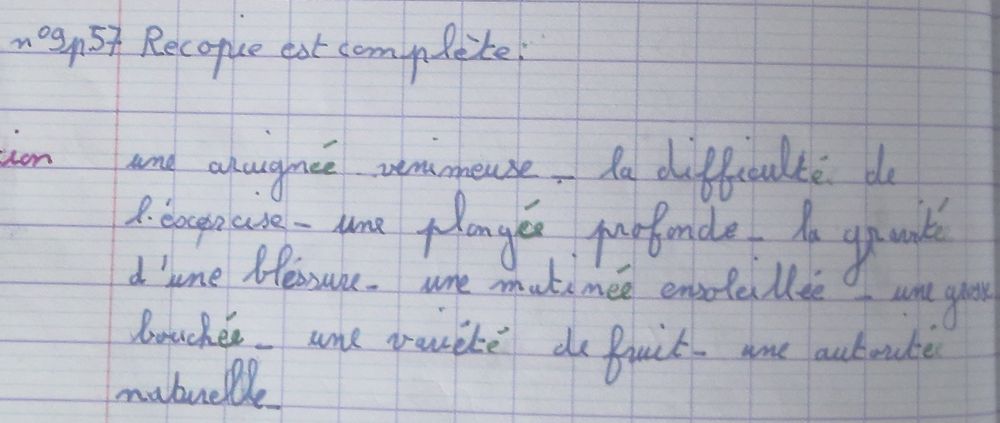 n°9p57 Recopie est complète:
une araignée venimeuse - la difficulté de
l'éxercise - une plongée profonde - la gravité
d'une bléssure - une matinée ensoleillée - une grosse
bouchée - une variété de fruit - une autorité
naturelle